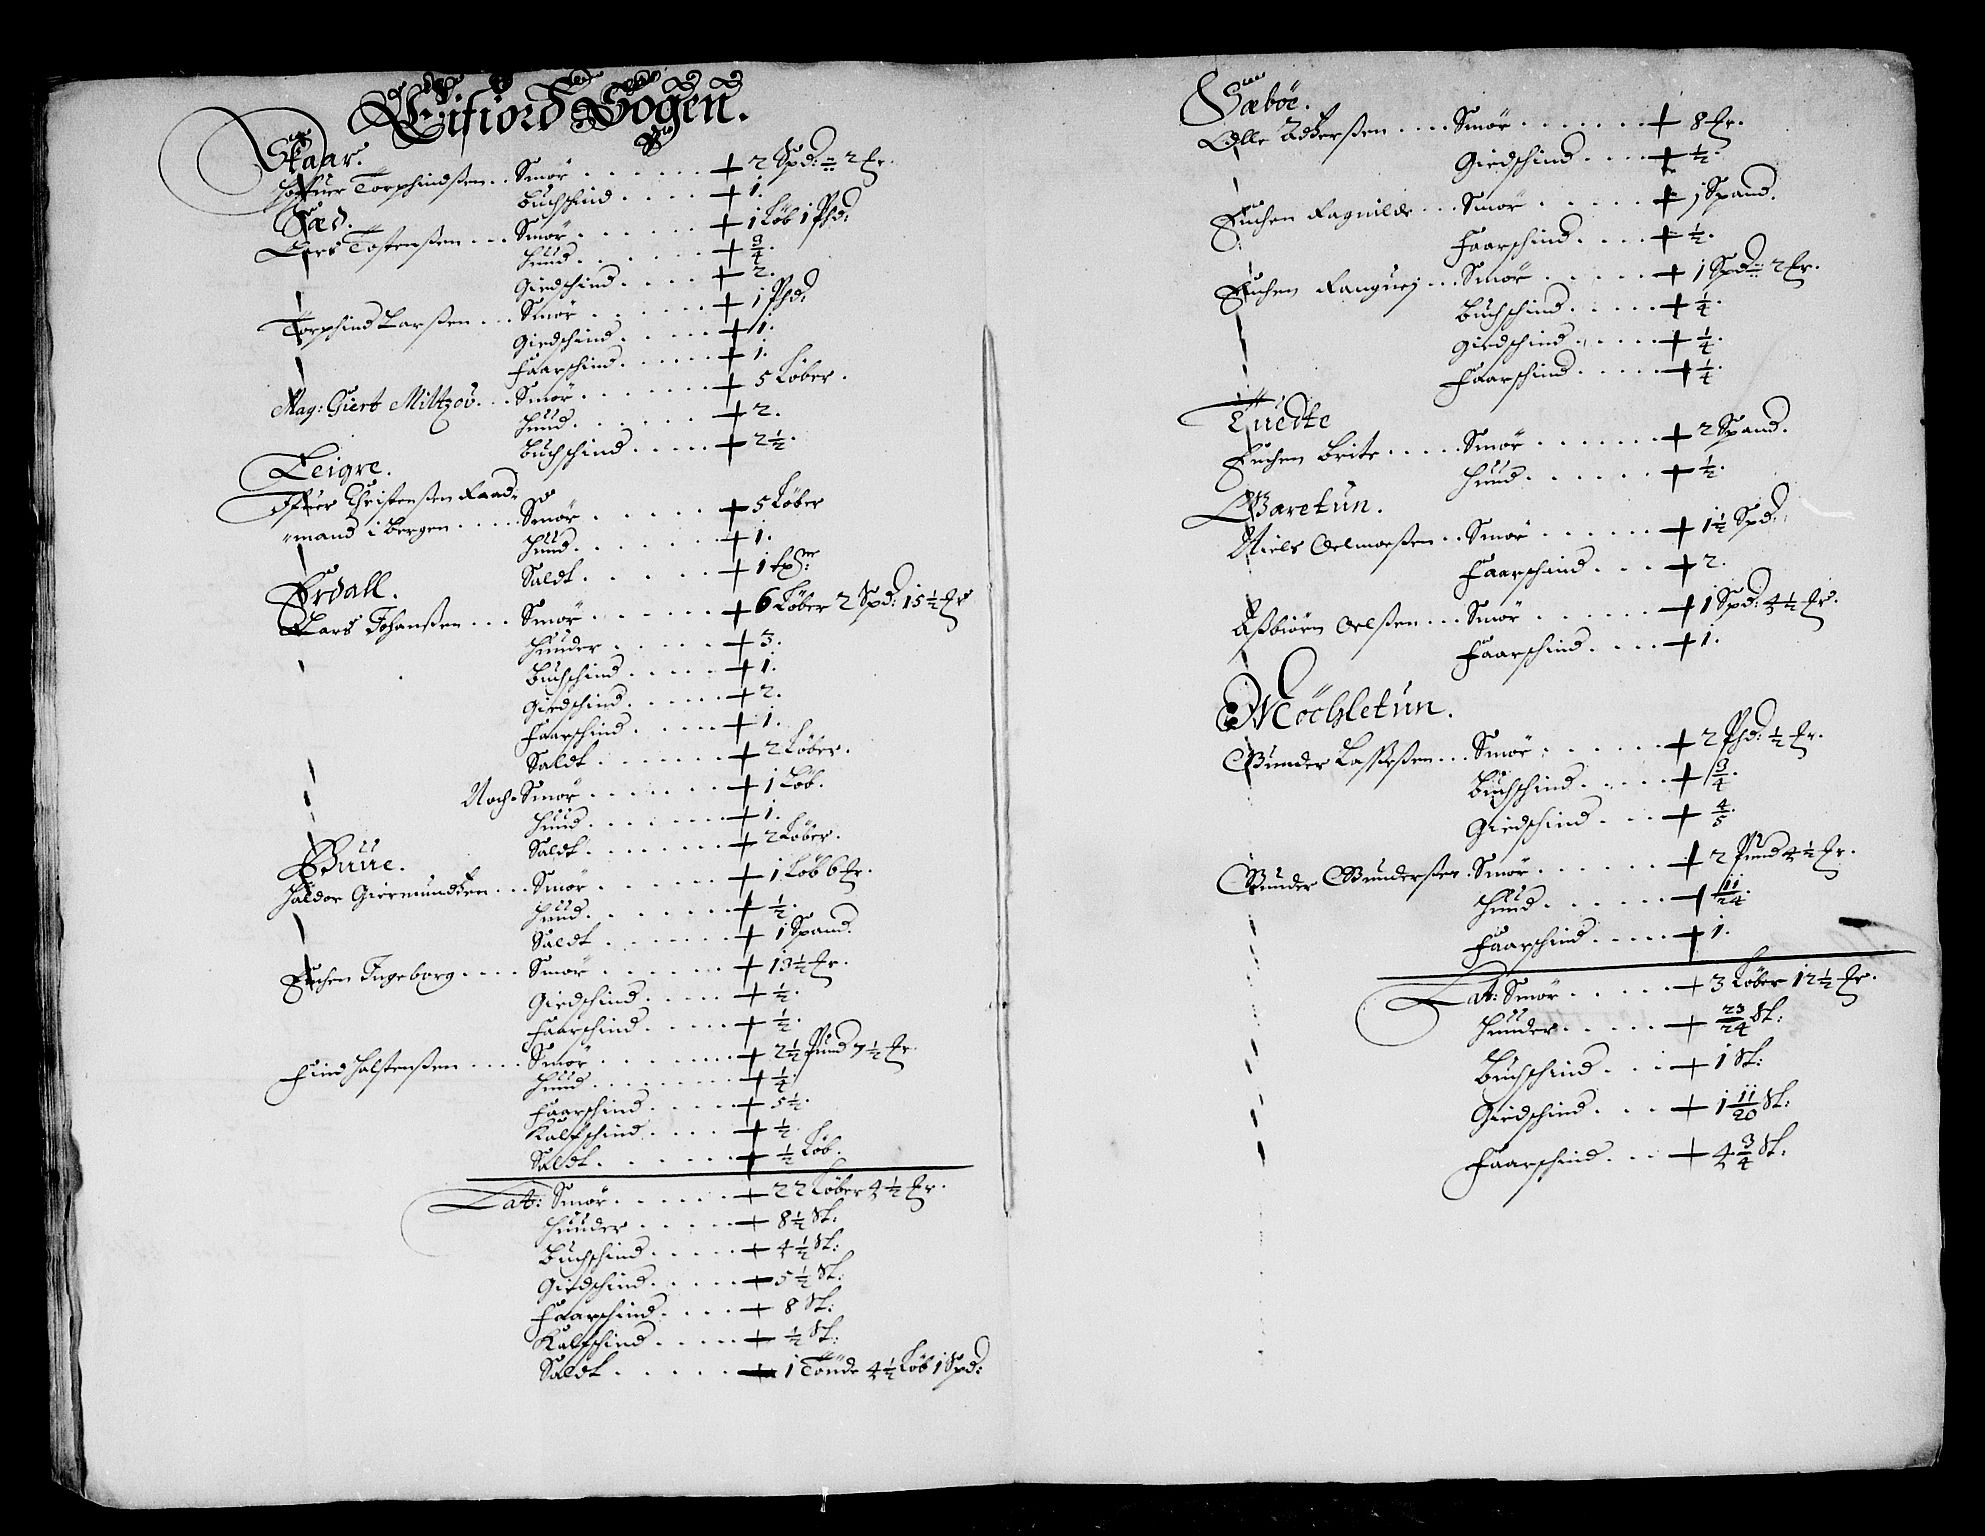 Eifiord Sogen.
Skaar.
Torphindsen . . Smör . . . . . . + 2 Spd: = 2 Er.
Buchschind . . . . + 1.
Sæd.
Lars Tostensen . . . Smör . . . . . . + 1 Löb 1 Phd:
Huud . . . . . . + 3/4.
Giedschind . . . . + 2.
Torphind Larsen . . . Smör . . . . . . + 1 Phd:
Giedschind . . . . . + 1.
Faarschind . . . . . + 1.
Mag: Giert Miltzou . . . Smör . . . . . . + 5 Löber.
Huud . . . . . . + 2.
Buchschind . . . . + 2 1/2.
Leigre.
Iffuer Christensen Raad-
mand i Bergen . . . . . Smör . . . . . . + 5 Löber
Huud . . . . . . + 1.
Saldt . . . . . . + 1
Erdall.
Lars Johansen . . . Smör . . . . . . + 6 Löber 2 Spd: 15 1/2 Er
Huuder . . . . . + 3.
Buchschind . . . . . + 1.
Giedschind . . . . . + 2.
Faarschind . . . . . + 1.
Saldt . . . . . . + 2 Löber.
Noch- Smör . . . . . . + 1 Löb.
Huud . . . . . . + 1.
Saldt . . . . . . + 2 Löber.
Buue.
Haldor Giermundsen . . . Smör . . . . . . + 1 Löb 6 Er.
Huud . . . . . . + 1/2.
Saldt . . . . . . + 1 Spand.
Enchen Ingeborg . . . . Smör . . . . . . + 13 1/2 Er.
Giedschind . . . . + 1/2.
Faarschind . . . . + 1/2.
Find Halstensen . . . . Smör . . . . . . + 2 1/2 Pund 7 1/2 Er.
Huud . . . . . . + 1/4.
Faarschind . . . . + 5 1/2.
Kalfschind . . . . + 1/2.
Saldt . . . . . . + 1/2 Löb.
Lat: Smör . . . . . . + 22 Löber 4 1/2 Er.
Huuder . . . . . + 8 1/2 St:
Buchschind . . . . + 4 1/2 St:
Giedschind . . . . + 5 1/2 St:
Faarschind . . . . + 8 St:
Kalfschind . . . . + 1/2 St:
Saldt . . . . . . + 1 Tönde 4 1/2 Löb 1 Spd:
Sæböe.
Olle Adersen . . . . Smör . . . . . . + 8 Er.
Giedschind . . . . + 1/2.
Enchen Ragnilde . . . Smör . . . . . + 1 Spand.
Faarschind . . . . + 1/2.
Enchen Ranguej . . . Smör . . . . . + 1 Spd = 2 Er.
Buchschind . . . . . + 1/4.
Giedschind . . . . . + 1/4.
Faarschind . . . . . + 1/4.
Tuedte
Enchen Brite . . . . . Smör . . . . . . + 2 Spand.
Huud . . . . . . + 1/2.
Garetun.
Niels Oelmoesen . . Smör . . . . . . + 1 1/2 Spd:
Faarschind . . . . + 2.
Asbiörn Oelsen . . . Smör . . . . . . + 1 Spd: 4 1/2 Er.
Faarschind . . . . + 1.
Möchletun.
Gunder Lassesen . . . Smör . . . . . . + 2 Phd: 1/2 Er.
Buchschind . . . . + 3/4.
Giedschind . . . . + 4/5.
Gunder Gundersen . Smör . . . . . . + 2 Pund 4 1/2 Er.
Huud . . . . . . + 11/24.
Faarschind . . . . . + 1.
Lat: Smör . . . . . + 3 Löber 12 1/2 Er.
Huuder . . . . . + 23/24 St:
Buchschind . . . + 1 St:
Giedschind . . . . + 1 11/20 St:
Faarschind . . . . + 4 3/4 St: